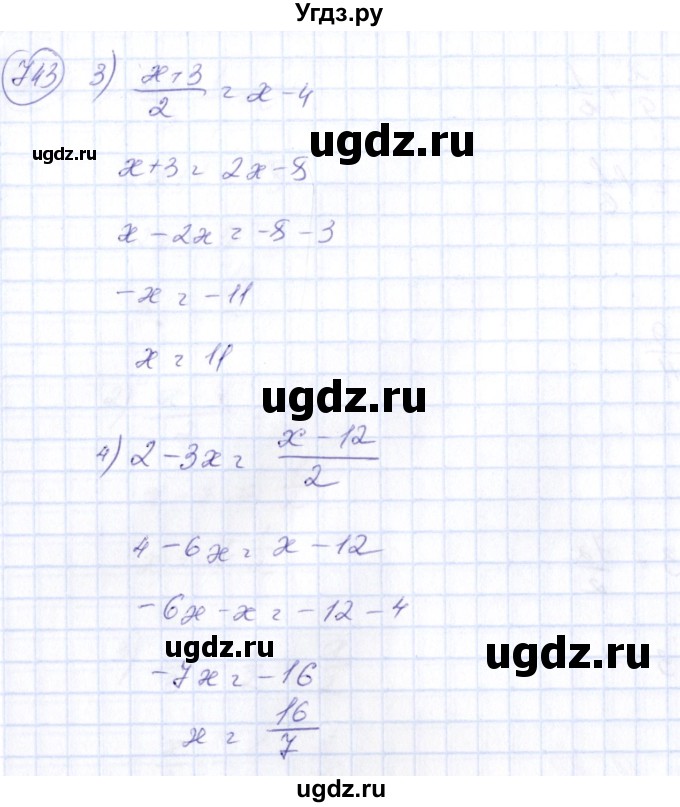 Угдз.ру
743 3) (x+3)/2 = x-4
ugdz.ru
ugdz.ru
x+3 = 2x-8
x-2x = -8-3
-x = -11
x = 11
ugdz.ru
4) 2-3x = (x-12)/2
4-6x = x-12
-6x-x = -12-4
ugdz.ru
ugdz.ru
-7x = -16
x = 16/7